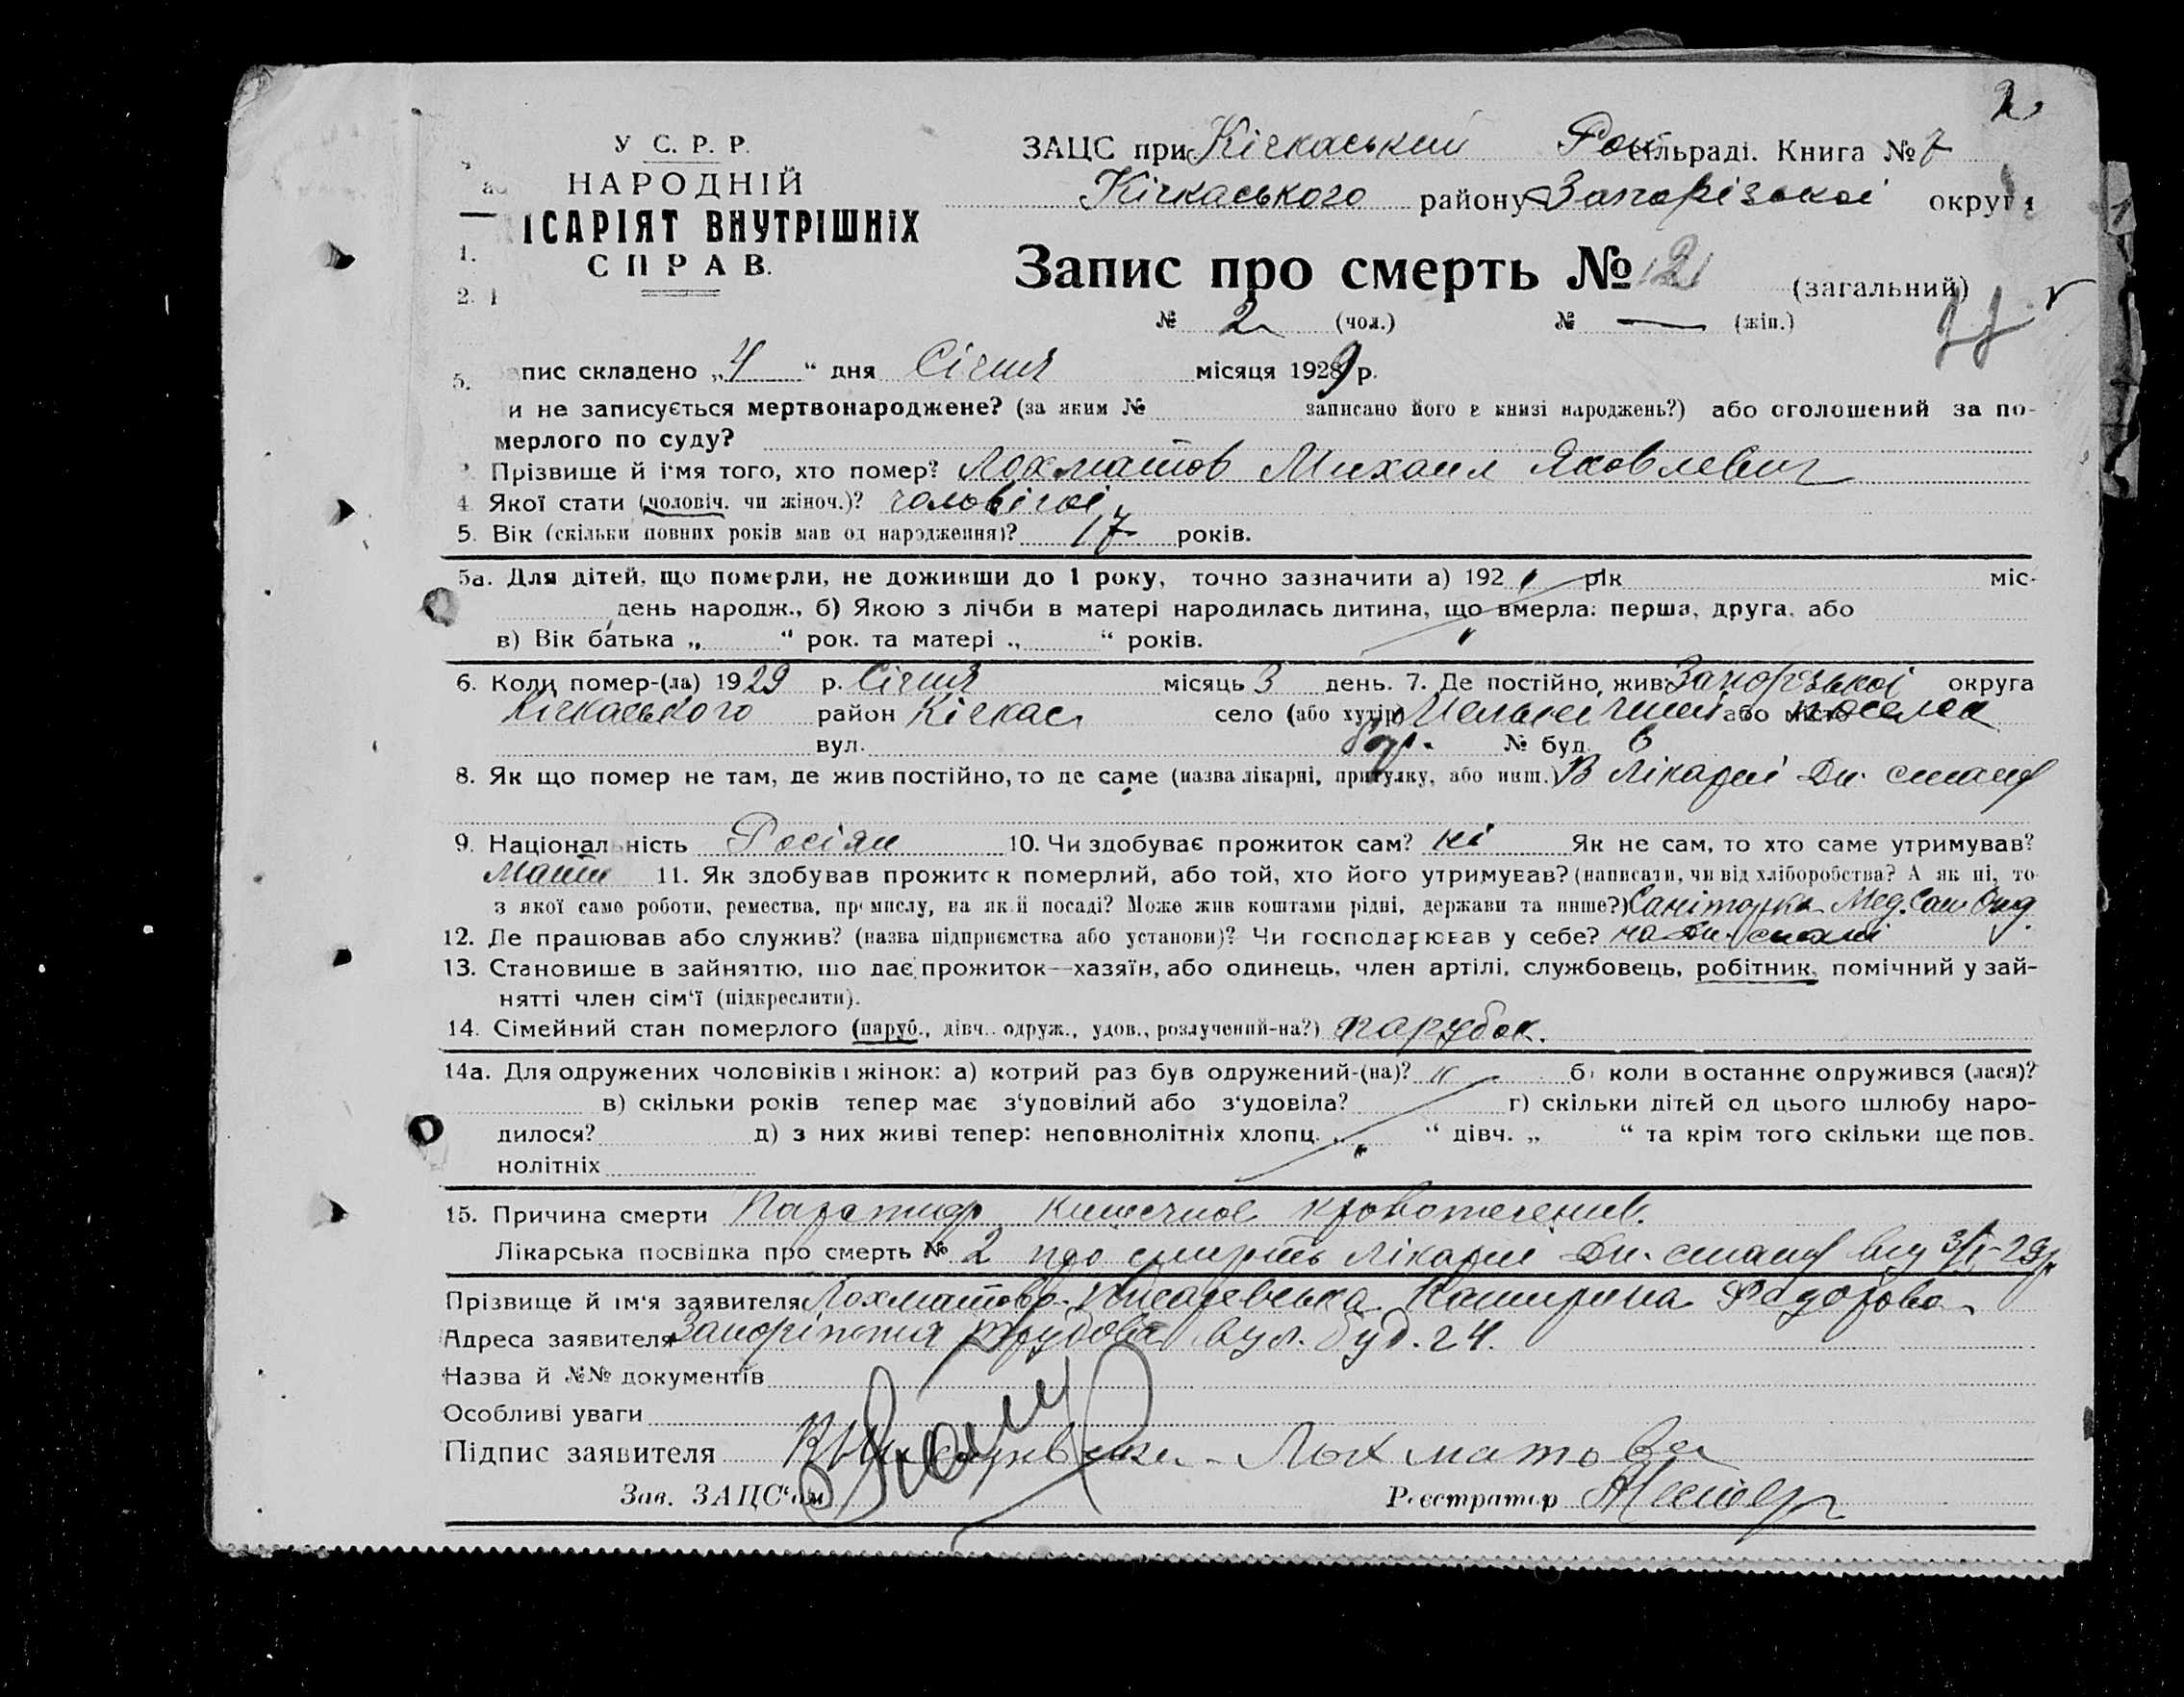 2
У С. Р. Р.
НАРОДНІЙ
ІСАРІЯТ ВНУТРІШНІХ
СПРАВ.
ЗАЦС при Кічкаський Рай сільраді. Книга № 7
Кічкаського району Запорізької округи
Запис про смерть № 2 (загальний)
№ 2 (чол.) № — (жін.)
апис складено „4“ дня Січня місяця 1929 р.
и не записується мертвонароджене? (за яким № записано його в книзі народжень?) або оголошений за по-
мерлого по суду?
Прізвище й ім'я того, хто помер? Лохматов Михаил Яковлевич
4 Якої стати (чоловіч. чи жіноч.)? чоловічої
5. Вік (скільки повних років мав од народження)? 17 років.
5а. Для дітей, що померли, не доживши до 1 року, точно зазначити а) 192 рік міс-
день народж., б) Якою з лічби в матері народилась дитина, що вмерла: перша, друга, або
в) Вік батька „ “ рок. та матері „ “ років.
6. Коли помер-(ла) 1929 р. Січня місяць 3 день. 7. Де постійно жив Запорізької округа
Кічкаського район Кічкас село (або хутір) або місто поселок
вул. № буд. 6
8. Як що помер не там, де жив постійно, то де саме (назва лікарні, притулку, або инш.) В лікарні Дн.
9. Національність Росіян 10. Чи здобуває прожиток сам? ні Як не сам, то хто саме утримував?
Мати 11. Як здобував прожиток померлий, або той, хто його утримував? (написати, чи від хліборобства? А як ні, то
з якої саме роботи, ремества, промислу, на якій посаді? Може жив коштами рідні, держави та инше?) Санітарка Мед. Сан
12. Де працював або служив? (назва підприємства або установи)? Чи господарював у себе? на Дн.
13. Становище в зайняттю, що дає прожиток—хазяїн, або одинець, член артілі, службовець, робітник, помічний у зай-
нятті член сім'ї (підкреслити).
14. Сімейний стан померлого (паруб., дівч. одруж., удов., розлучений-на?) парубок.
14а. Для одружених чоловіків і жінок: а) котрий раз був одружений-(на)? „ б) коли востаннє одружився (лася)?
в) скільки років тепер має з'удовілий або з'удовіла? г) скільки дітей од цього шлюбу наро-
дилося? д) з них живі тепер: неповнолітніх хлопц. „ “ дівч. „ “ та крім того скільки ще пов.
нолітніх
15. Причина смерти Паратиф кишечное кровотечение.
Лікарська посвідка про смерть № 2 про смерть лікарні Дн. від 3/I-29р
Прізвище й ім'я заявителя Лохматова- Катирина Федорова
Адреса заявителя Запоріжжя Трудова вул. буд. 24.
Назва й №№ документів
Особливі уваги
Підпис заявителя Лохматова
Зав. ЗАЦС'ом
Реєстратор